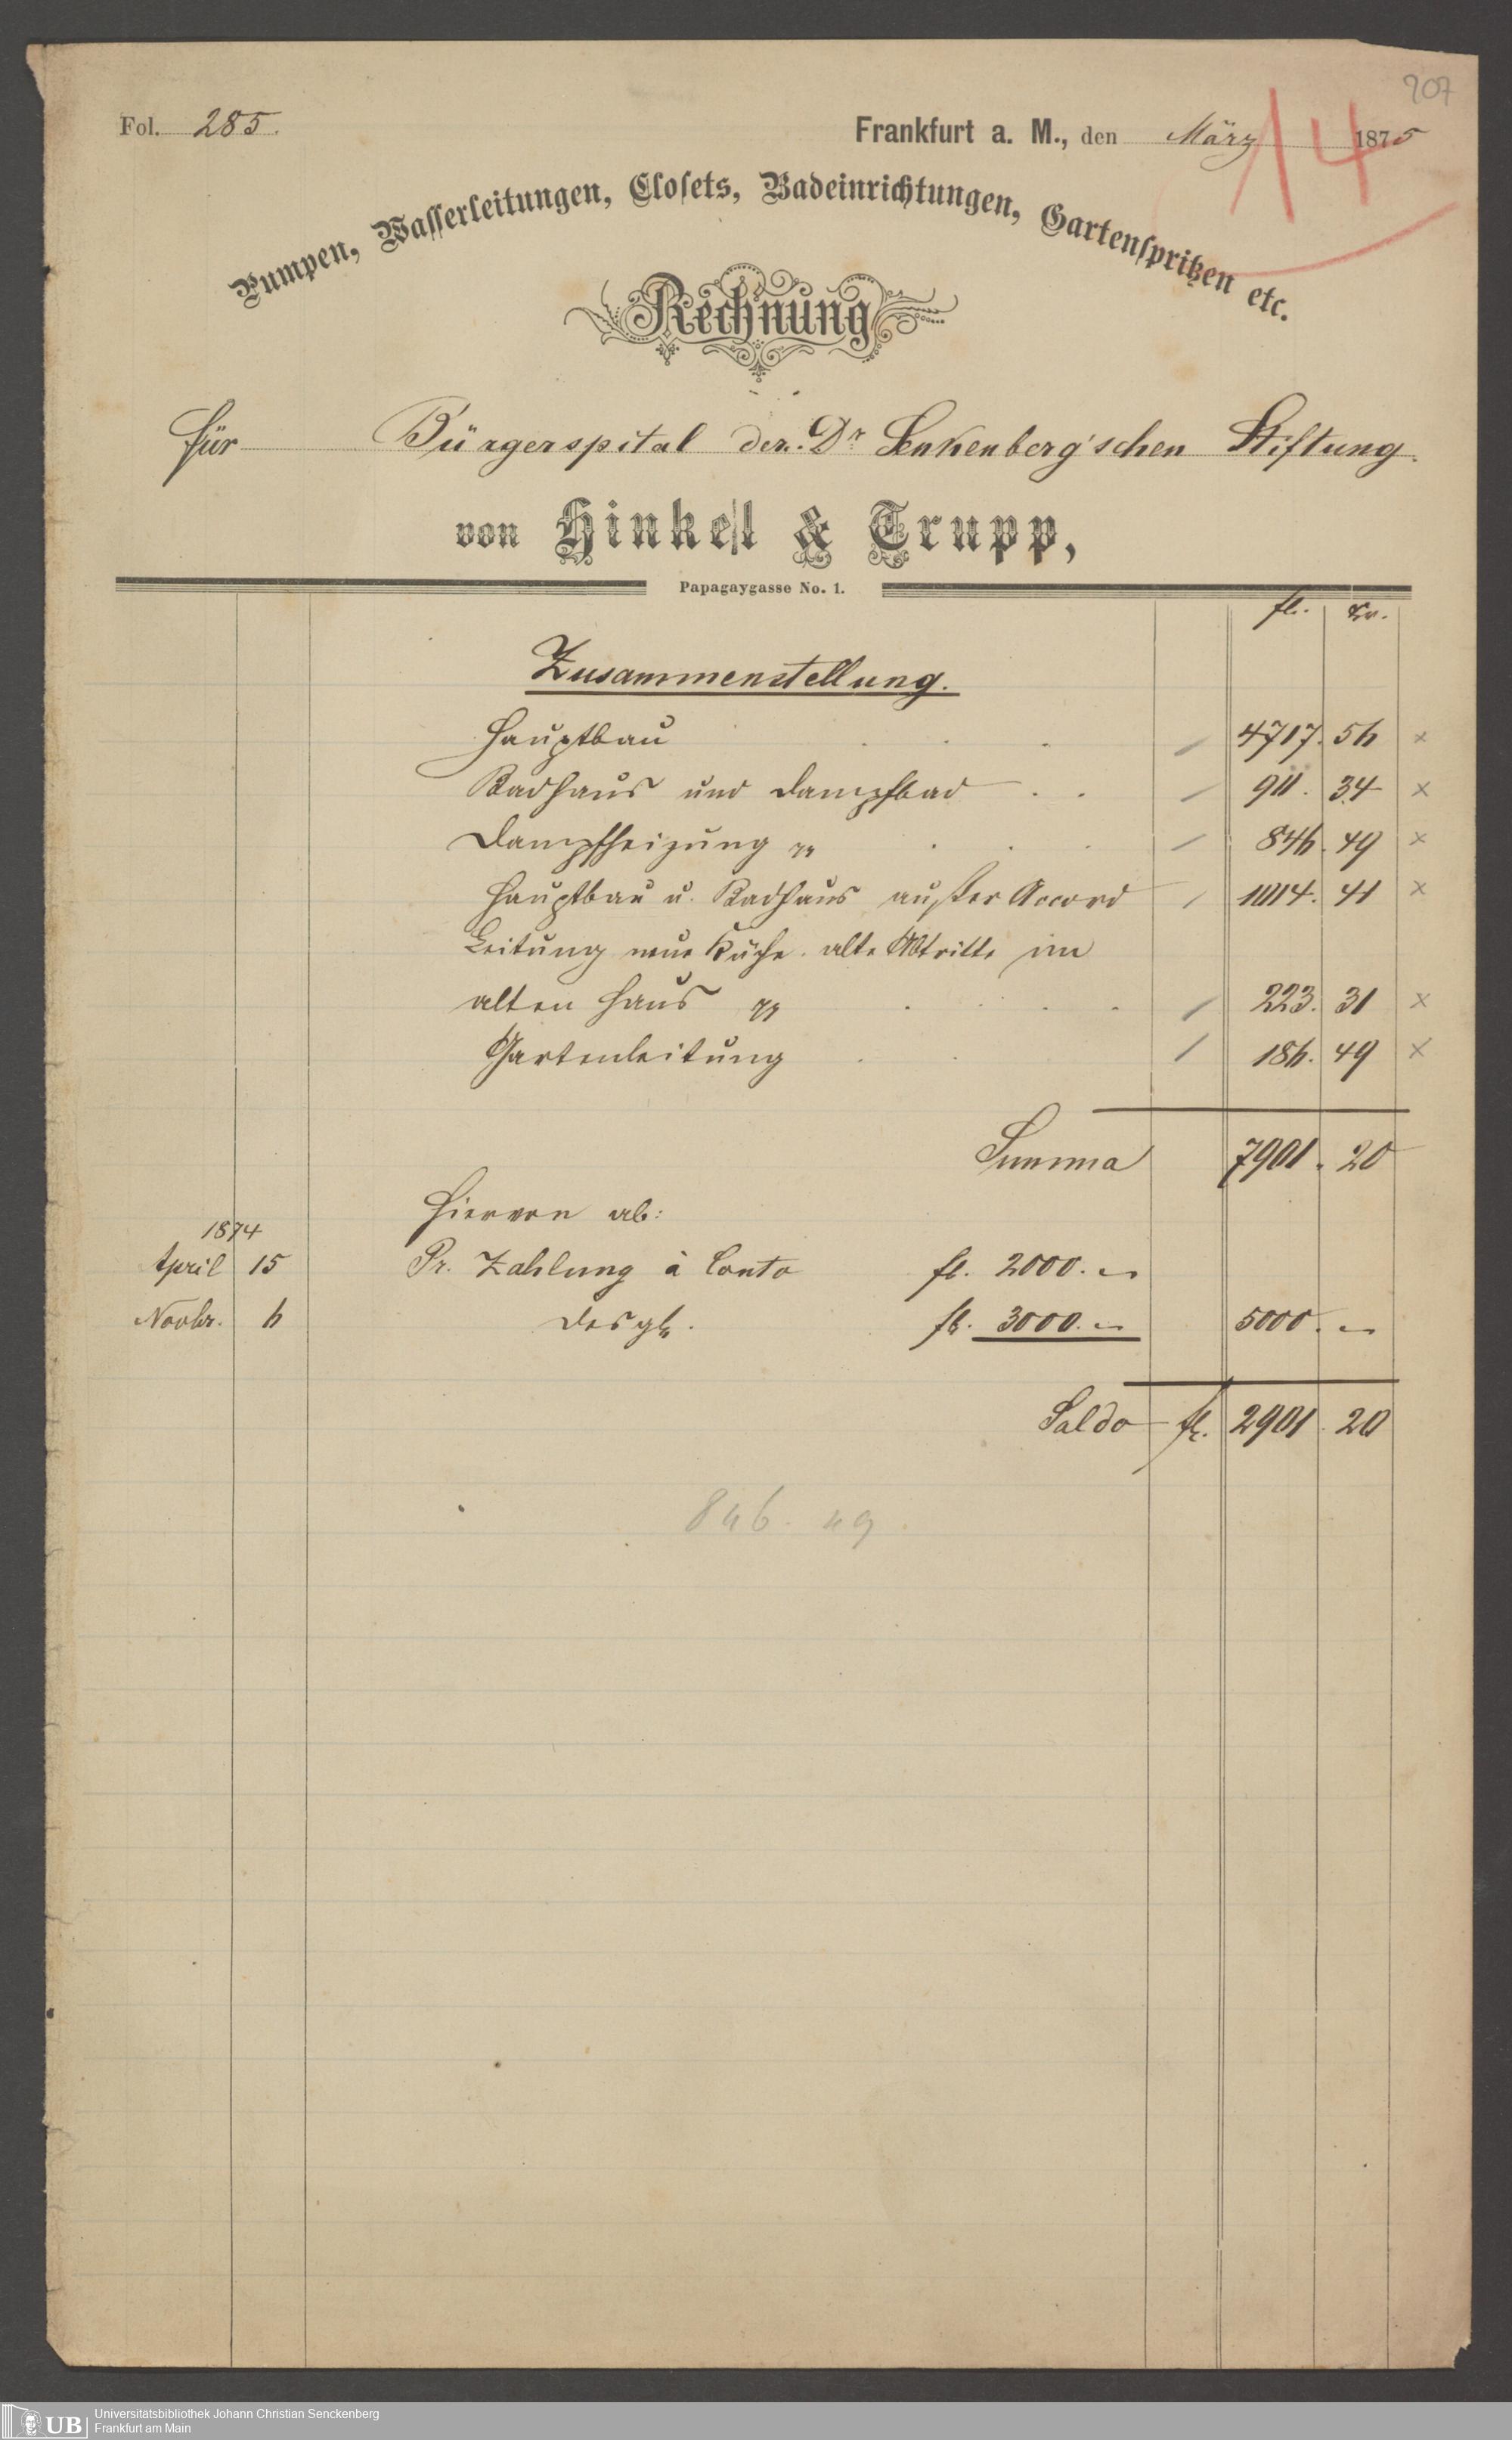 207
Fol. 285.
Frankfurt a. M., den März 1875
14
Pumpen, Wasserleitungen, Closets, Badeinrichtungen, Gartenspritzen etc.
Rechnung
Für Bürgerspital der Dr Senkenberg'schen Stiftung.
von Hinkel & Trupp,
Papagaygasse No. 1.
fl. Kr.
Zusammenstellung.
Hauptbau 4717. 56
Badhaus und Dampfbad 911. 34
Dampfheizung pp 846. 49
Hauptbau u. Badhaus außer Accord 1014. 41
Leitung neue Küche. alte Abtritte im
alten Haus pp 223. 31
Gartenleitung 186. 49
Summa 7901. 20
Hiervon ab:
1874
April 15 Pr. Zahlung à Conto fl. 2000. –
Novbr. 6 desgl. fl. 3000. – 5000. –
Saldo fl. 2901. 20
846. 49
UB Universitätsbibliothek Johann Christian Senckenberg
Frankfurt am Main